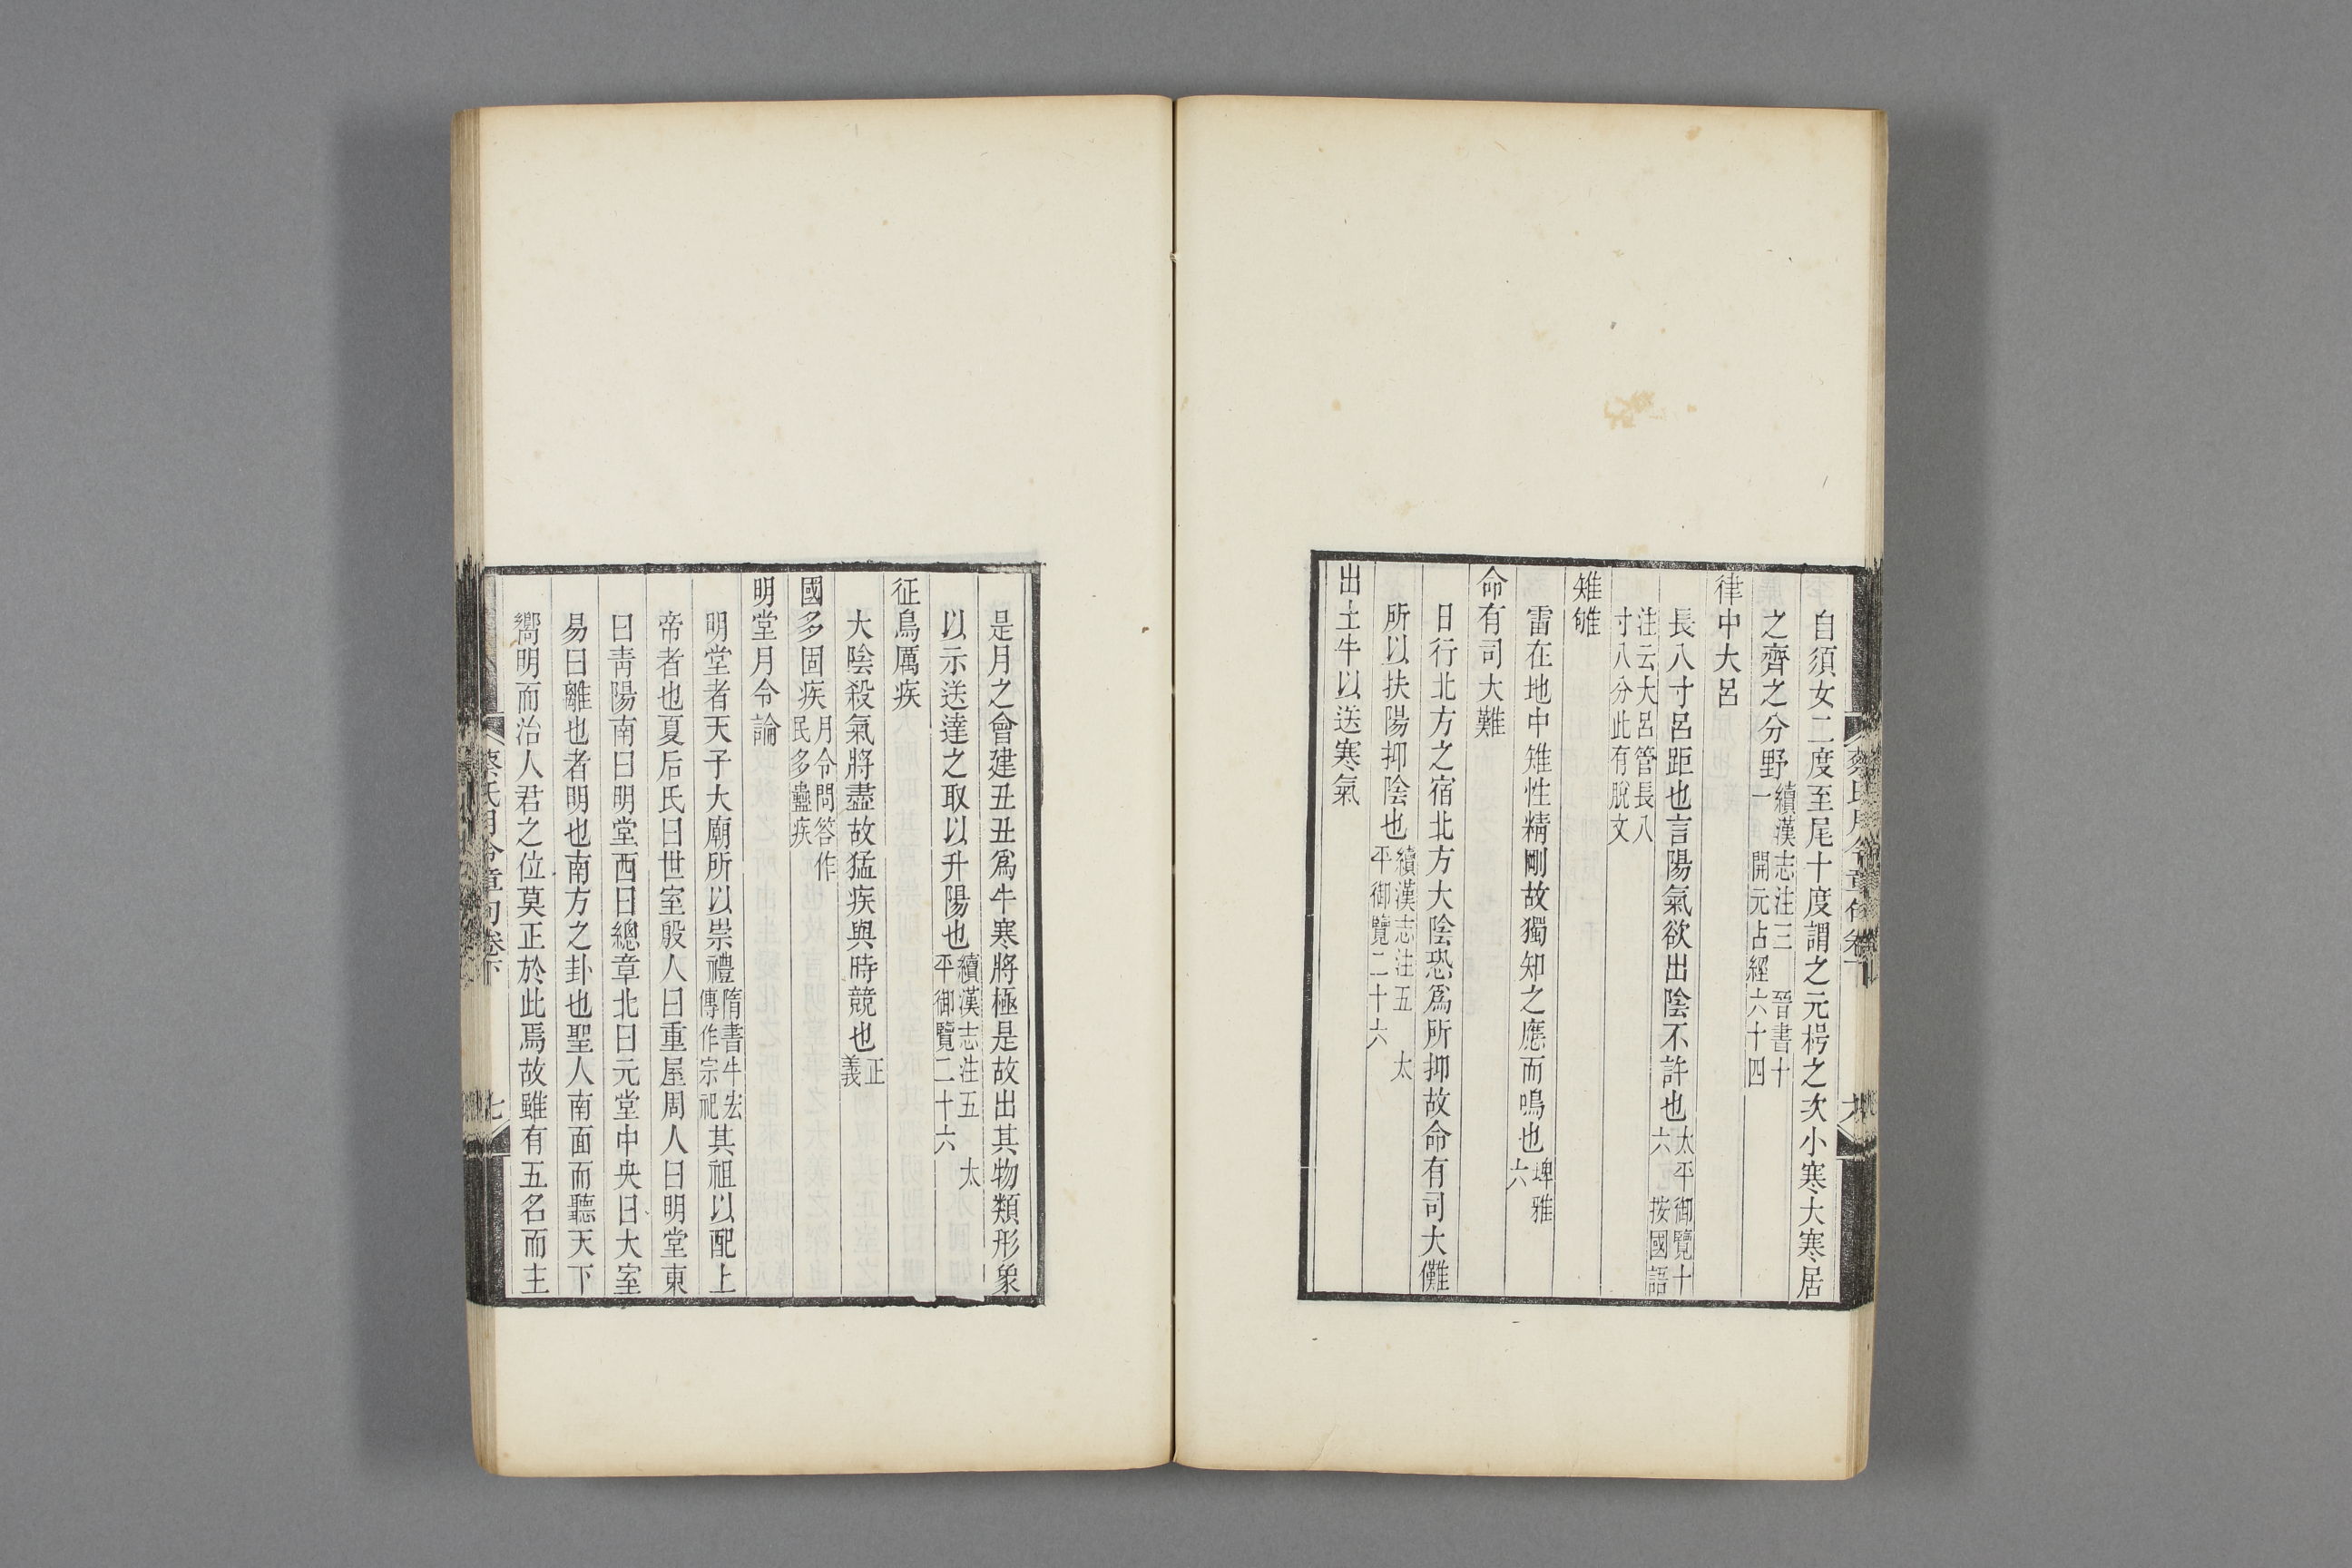 自須女二度至尾十度謂之元枵之次小寒大寒居
之齊之分野續漢志注三　晉書十一　開元占經六十四
律中大呂
長八寸呂距也言陽氣欲出陰不許也太平御覽十六　按國語
注云大呂管長八寸八分此有脫文
雉雊
雷在地中雉性精剛故獨知之應而鳴也埤雅六
命有司大難
日行北方之宿北方大陰恐爲所抑故命有司大儺
所以扶陽抑陰也續漢志注五　太平御覽二十六
出土牛以送寒氣
是月之會建丑丑爲牛寒將極是故出其物類形象
以示送達之取以升陽也續漢志注五　太平御覽二十六
征鳥厲疾
大陰殺氣將盡故猛疾與時競也正義
國多固疾月令問答作民多蠱疾
明堂月令論
明堂者天子大廟所以崇禮隋書牛宏傳作宗祀其祖以配上
帝者也夏后氏曰世室殷人曰重屋周人曰明堂東
曰靑陽南曰明堂西曰總章北曰元堂中央曰大室
易曰離也者明也南方之卦也聖人南面而聽天下
嚮明而治人君之位莫正於此焉故雖有五名而主
蔡氏月令章句卷下
七